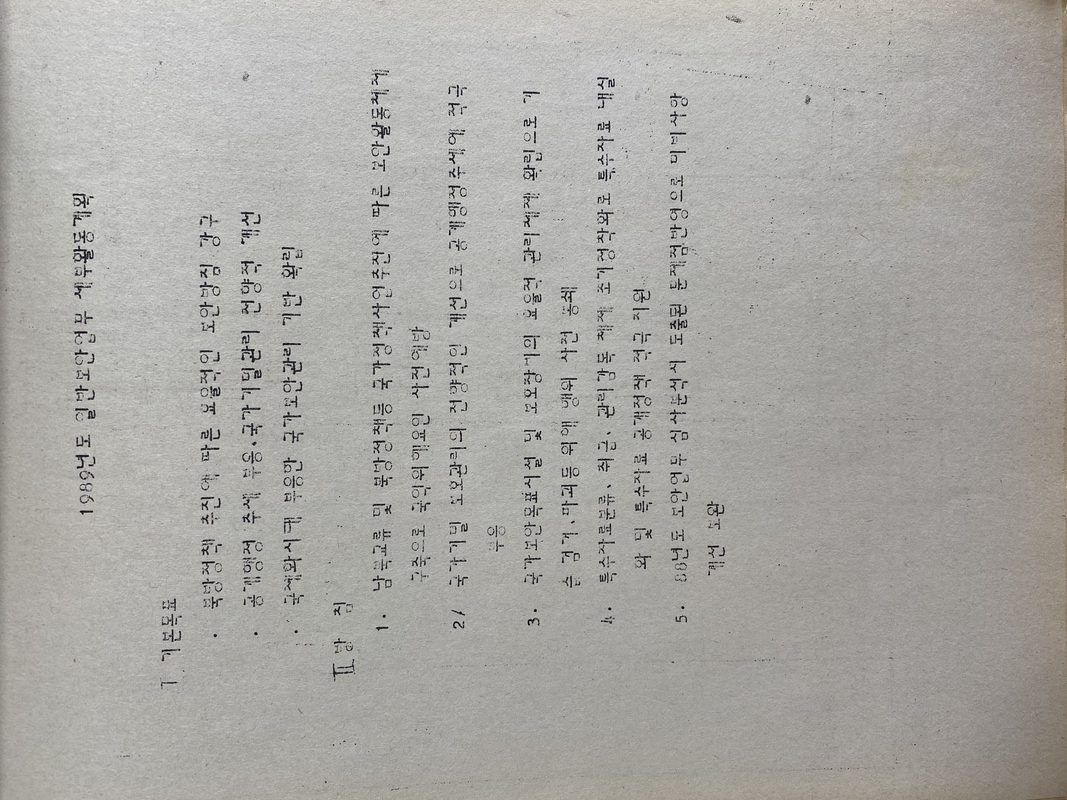 1989년도 일반보안업무 세부활동계획
I 기본목표
· 북방정책 추진에 따른 효율적인 보안방침 강구
· 공개행정 추세 부응·국가기밀관리 전향적 개선
· 국제화시대 부응한 국가보안관리 기반 확립
II 방 침
1. 남북교류 및 북방정책등 국가정책사업추진에 따른 보안활동체제
구축으로 국익위해요인 사전예방
2/ 국가기밀 보호관리의 전향적인 개선으로 공개행정추세에 적극
부응
3. 국가보안목표시설 및 보호장비의 효율적 관리체제 확립으로 기
습 점거、파괴등 위해 행위 사전 봉쇄
4. 특수자료분류、취급、관리감독 체제 조기정착화로 특수자료 내실
화 및 특수자료 공개정책 적극 지원
5. 88년도 보안업무 심사분석시 도출된 문제점반영으로 미비사항
개선 보완